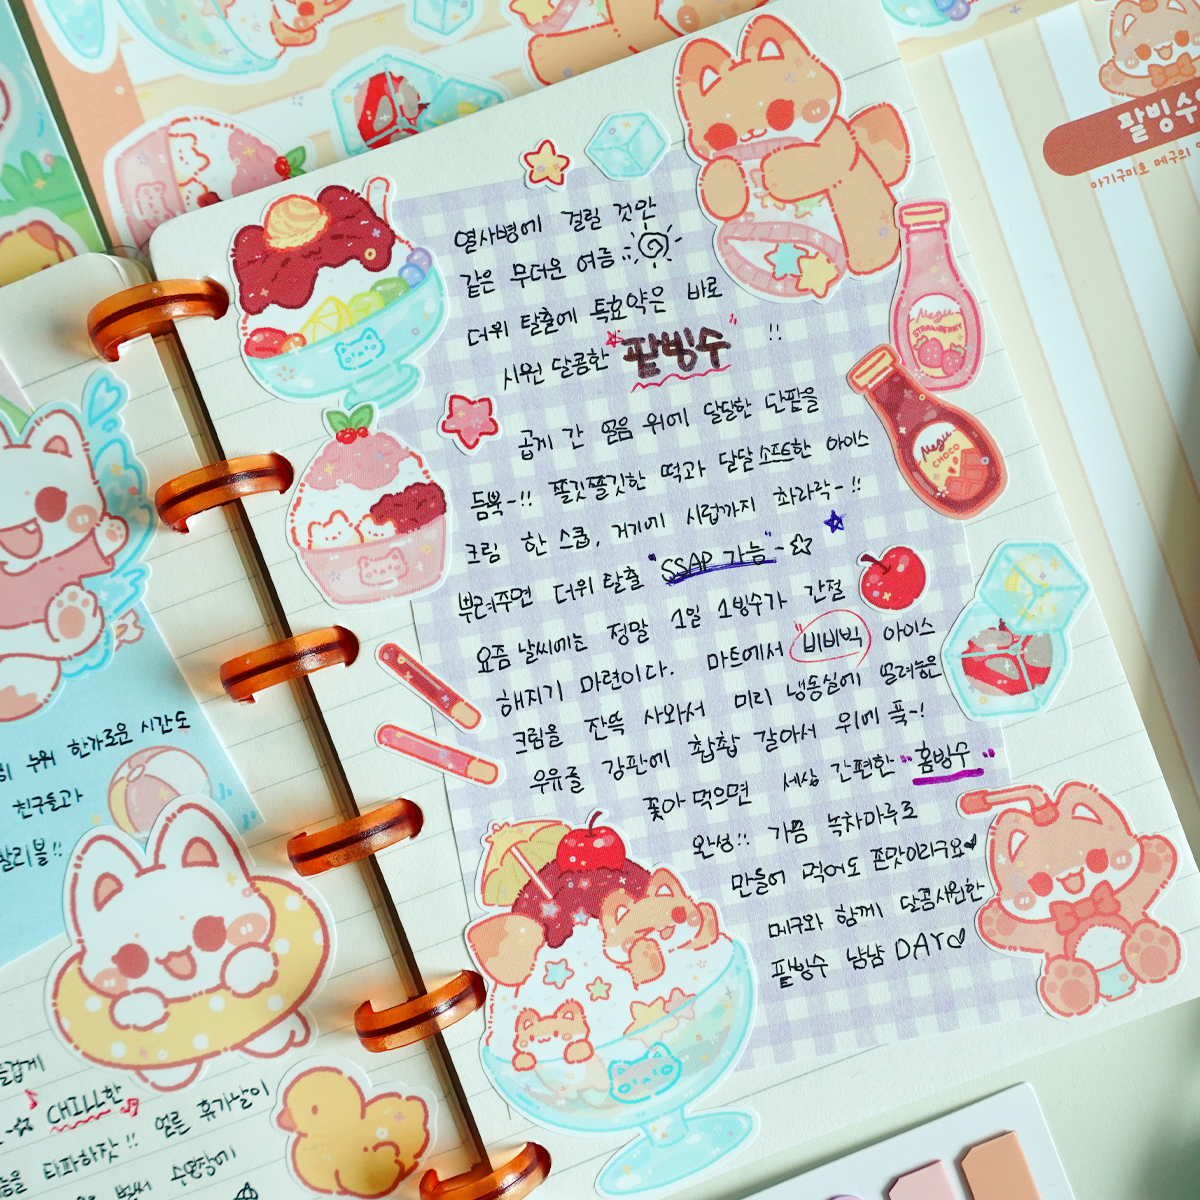 팥빙수
아기구미호 메구의
열사병에 걸릴 것만
같은 무더운 여름
더위 탈출에 특효약은 바로
시원 달콤한 "팥빙수" !!
곱게 간 얼음 위에 달달한 단팥을
듬뿍~!! 쫄깃쫄깃한 떡과 달달 소프트한 아이스
크림 한 스쿱, 거기에 시럽까지 촤라락~!!
뿌려주면 더위 탈출 "SSAP 가능"~☆
요즘 날씨에는 정말 1일 1빙수가 간절
해지기 마련이다. 마트에서 "비비빅" 아이스
크림을 잔뜩 사와서 미리 냉동실에 얼려놓은
우유를 강판에 촵촵 갈아서 위에 푹~!
꽃아 먹으면 세상 간편한 "홈빙수"
완성!! 가끔 녹차마루로
만들어 먹어도 존맛이라구요♥
메구와 함께 달콤시원한
팥빙수 냠냠 DAY♡
Megu
STRAWBERRY
Megu
CHOCO
누워 한가로운 시간도
친구들과
CHILL한
타파하잣!! 얼른 휴가날이
벌써 수영장에